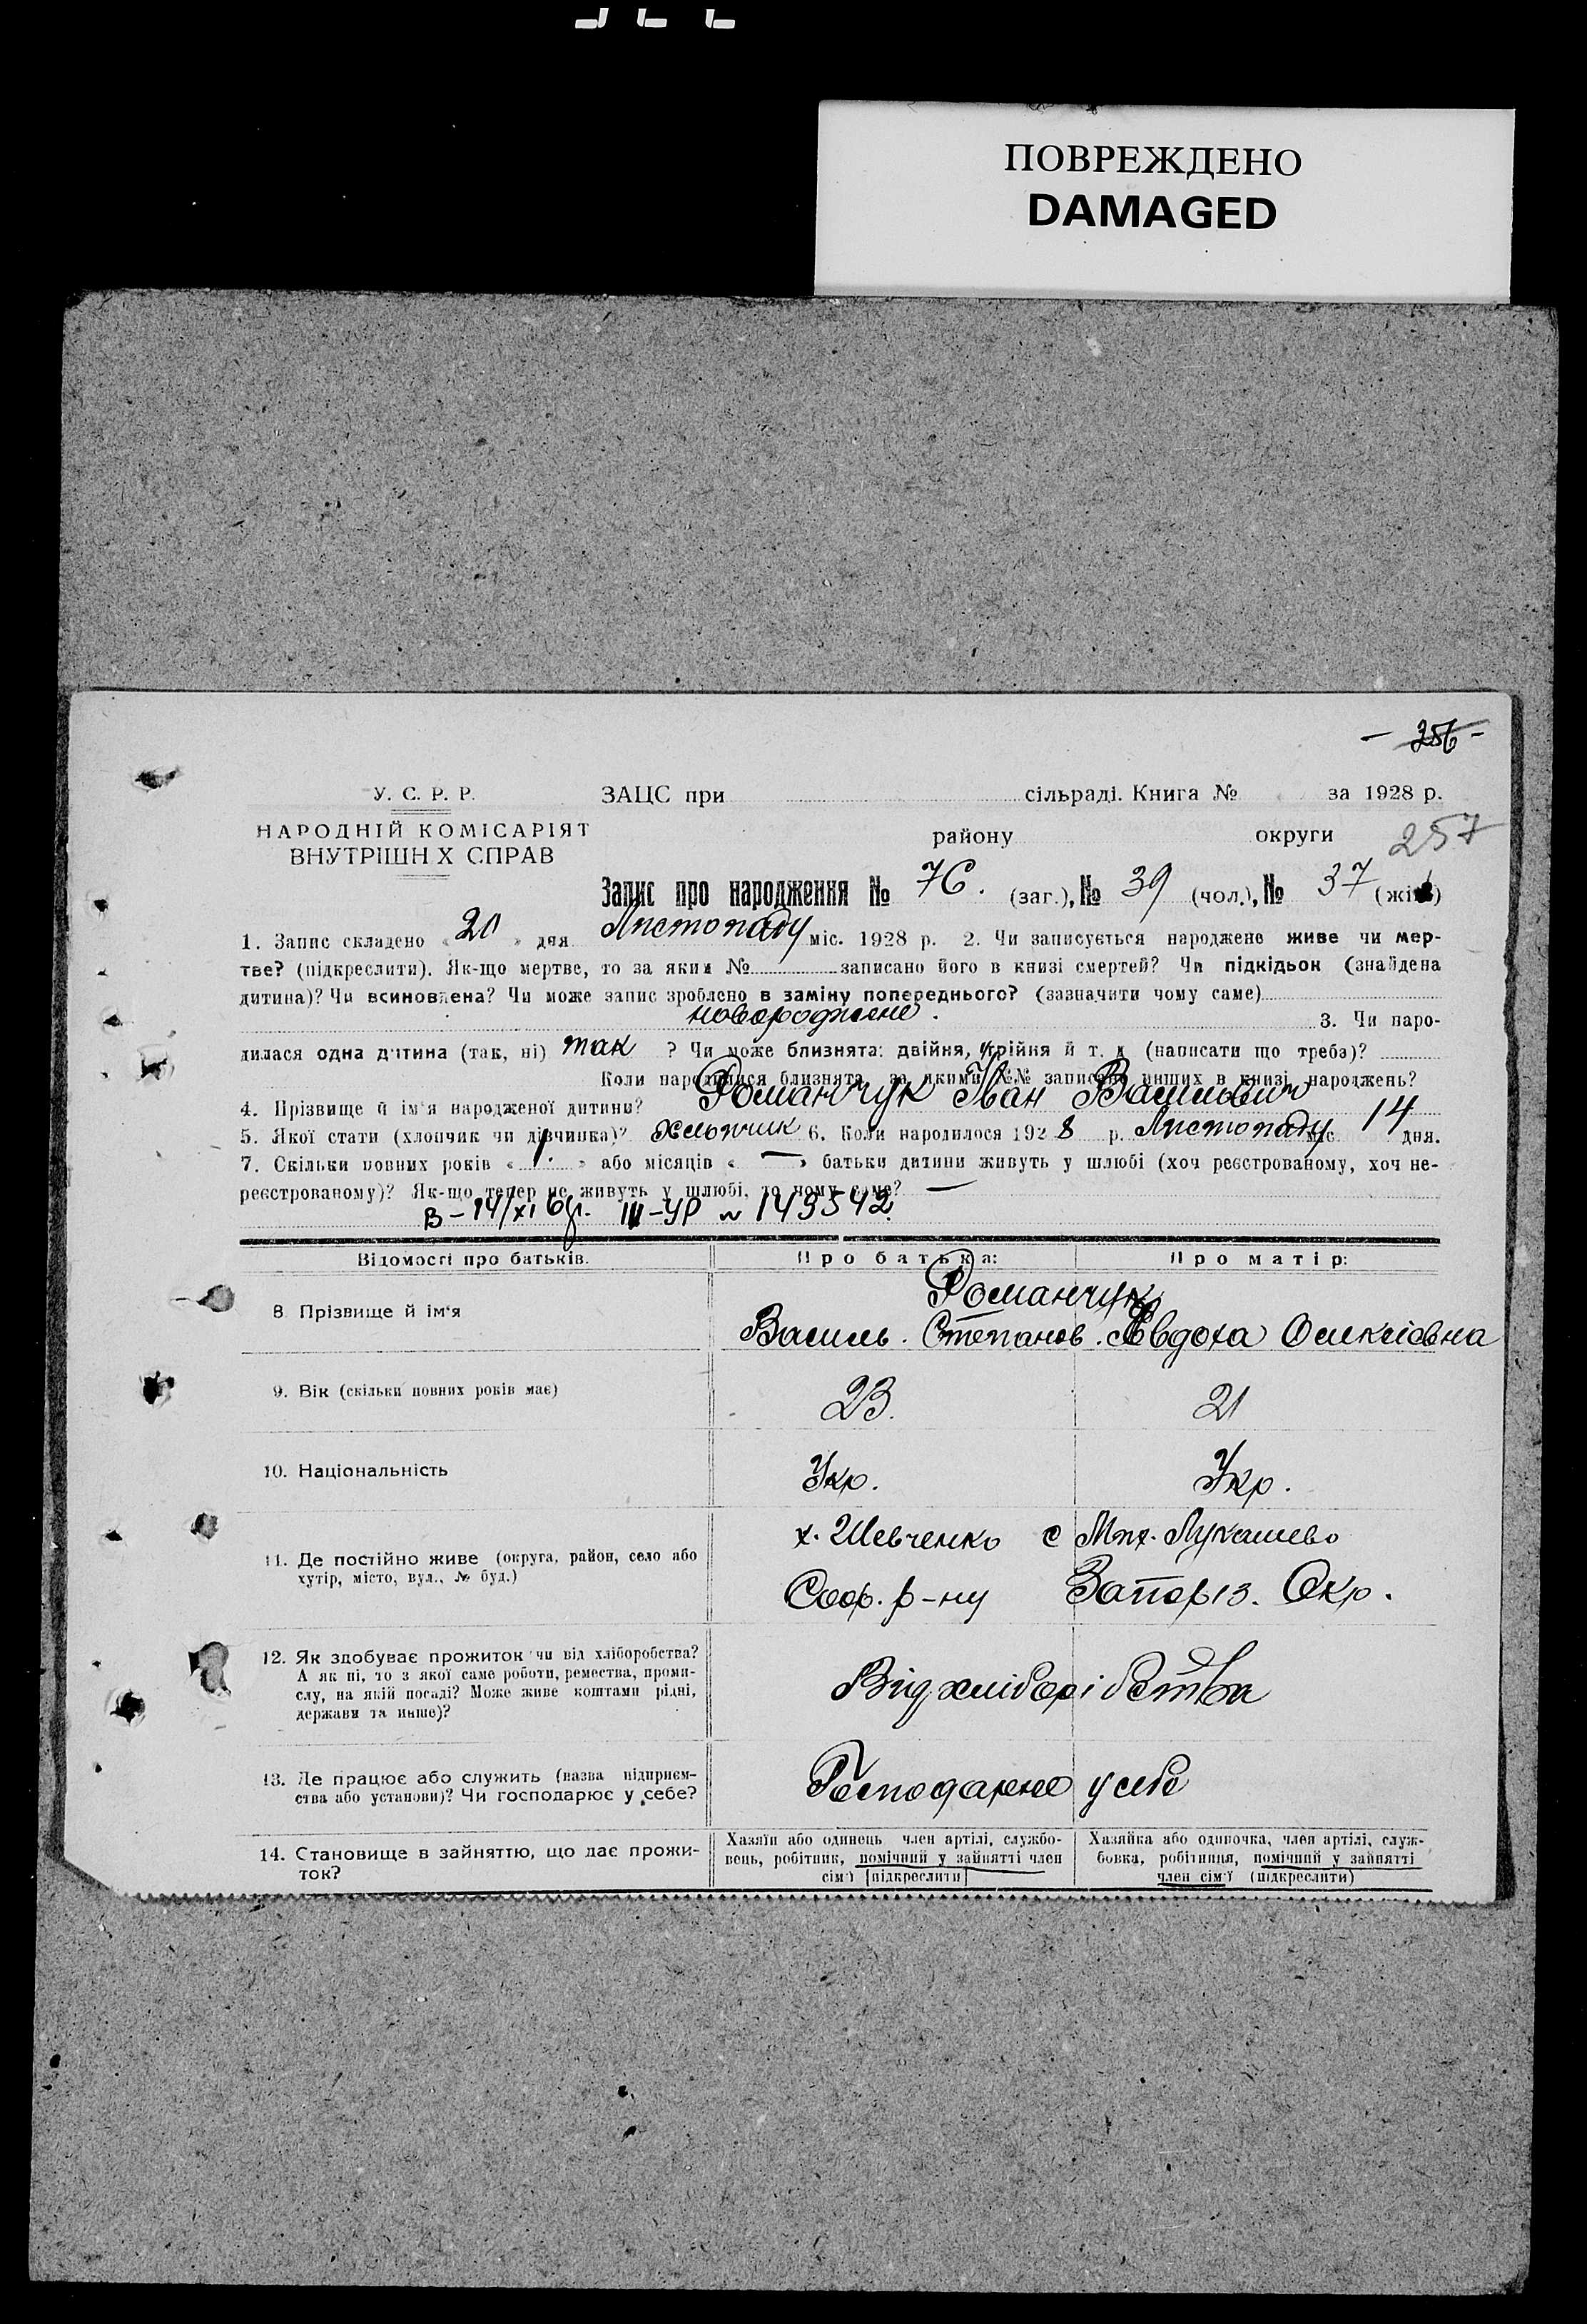 ПОВРЕЖДЕНО
DAMAGED
- 256 -
У. С. Р. Р.
ЗАЦС при сільраді. Книга № за 1928 р.
НАРОДНІЙ КОМІСАРІЯТ
ВНУТРІШН Х СПРАВ
району округи 257
Запис про народження № 76. (заг.), № 39 (чол.), № 37 (жін)
1. Запис складено « 20 » дня Листопаду міс. 1928 р. 2. Чи записується народжене живе чи мер-
тве? (підкреслити). Як-що мертве, то за яким № записано його в книзі смертей? Чи підкідьок (знайдена
дитина)? Чи всиновлена? Чи може запис зроблено в заміну попереднього? (зазначити чому саме)
новороджене. 3. Чи наро-
дилася одна дитина (так, ні) так ? Чи може близнята: двійня, трійня й т. д (написати що треба)?
Коли народилися близнята, за якими №№ записано инших в книзі народжень?
4. Прізвище й ім'я народженої дитини? Романчук Іван Васильович
5. Якої стати (хлопчик чи дівчинка)? Хлопчик 6. Коли народилося 1928 р. Листопаду міс. 14 дня.
7. Скільки повних років « 1. » або місяців « — » батьки дитини живуть у шлюбі (хоч реєстрованому, хоч не-
реєстрованому)? Як-що тепер не живуть у шлюбі, то чому саме? —
В-14/XI 6 III-УР № 143542.
Відомості про батьків. Про батька: Про матір:
8 Прізвище й ім'я
Романчук
Василь. Степанов. Явдоха Олексіевна
9. Вік (скільки повних років має) 23. 21
10. Національність Укр. Укр.
11. Де постійно живе (округа, район, село або
хутір, місто, вул., № буд.)
х. Шевченко с Мих. Лукашево
Соф. р-ну Запоріз. Окр.
12. Як здобуває прожиток чи від хліборобства?
А як ні, то з якої саме роботи, ремества, проми-
слу, на якій посаді? Може живе коштами рідні,
держави та инше)?
Від хліборібства
13. Де працює або служить (назва підприєм-
ства або установи)? Чи господарює у себе?
Господарює у себе
14. Становище в зайняттю, що дає прожи-
ток?
Хазяїн або одинець член артілі, службо-
вець, робітник, помічний у зайнятті член
сім'ї (підкреслити)
Хазяйка або одиночка, член артілі, служ-
бовка, робітниця, помічний у зайнятті
член сім'ї (підкреслити)